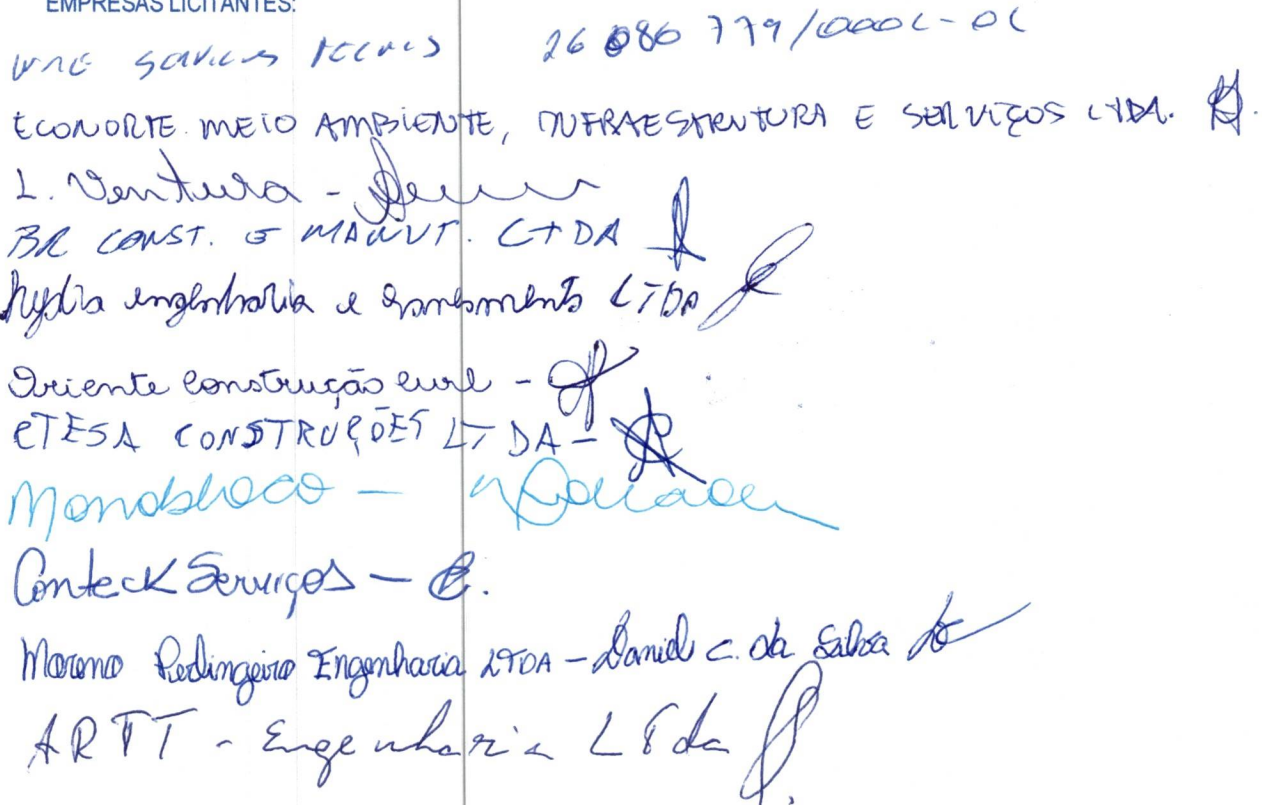 EMPRESAS LICITANTES:
26 086 779/0001-01
ECONORTE MEIO AMBIENTE, INFRAESTRUTURA E SERVIÇOS LTDA.
L. Ventura -
BR CONST. E MANUT. LTDA
hydra engenharia e saneamento LTDA
Oriente Construção eireli -
CTESA CONSTRUÇÕES LTDA -
Monobloco -
Conteck Serviços -
Moreno Engenharia LTDA - Daniel C. da
ARTT - Engenharia LTda